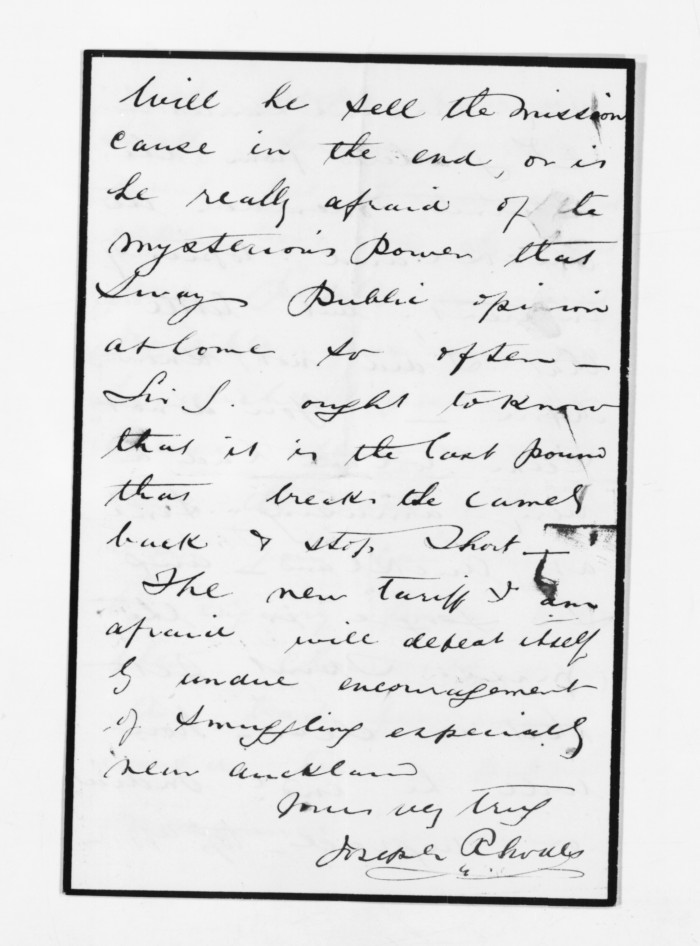 Will he sell the mission
cause in the end, or is
he really afraid of the
mysterious Power that
Sways Public opinion
at home so often —
Sir J. ought to know
that it is the last pound
that breaks the camels
back & stop short —
The new tariff I am
afraid will defeat itself
by undue encouragement
of smuggling especially
near Auckland
Yours very truly
Joseph Rhodes